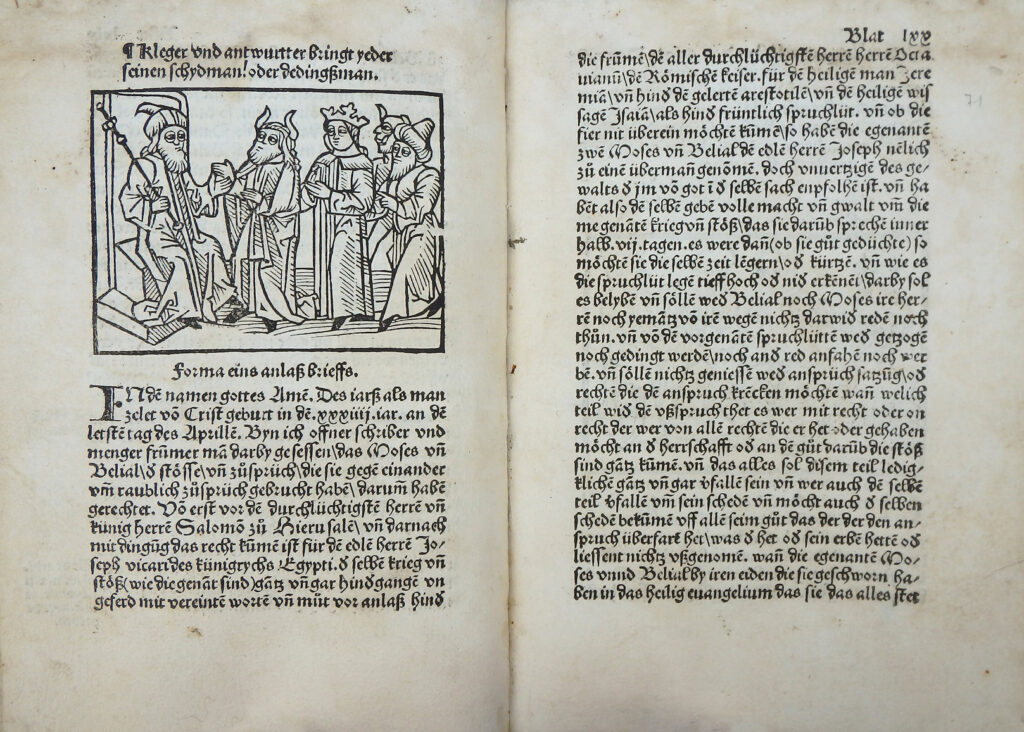 ¶ Kleger vnd antwurtter bringt yeder
seinen schydman/ oder dedingßman.
Forma eins anlaß brieffs.
INdē namen gottes Amē. Des iarß als man
zelet vō Crist geburt in dē. xxxiiij. iar. an dē
letstē tag des Aprillē. Byn ich offner schriber vnd
menger frūmer mā darby gesessen/ das Moses vn̄
Belial/ đ stösse/ vn̄ zůsprüch/ die sie gegē einander
vm̄ raublich zůsprüch gebrucht habē/ darum̄ habē
gerechtet. Vō erst vor dē durchlüchtigstē herrē vn̄
künig herrē Salomō zů Hierusalē/ vn̄ darnach
mit dingūg das recht kūmē ist für dē edlē herrē Jo-
seph vicari des künigrychs Egypti. đ selbē krieg vn̄
stöß/ wie die genāt sind/ gātz vn̄ gar hindgangē vn
geferd mit vereintē wortē vn̄ můt vor anlaß hind
Blat lxx
die frūmē/ dē aller durchlüchtigstē herrē herrē Octa
vianū/ dē Römischē keiser. für dē heiligē man Jere
miā/ vn̄ hind dē gelertē arestotilē/ vn̄ dē heiligē wis
sagē Jsaiā/ als hind früntlich spruchlüt. vn̄ ob die
fier nit überein möchtē kūmē/ so habē die egenantē
zwē Moses vn̄ Belial dē edlē herrē Joseph nēlich
zů einē überman genomē. doch vnuertzigē des ge-
walts đ jm vō got ī đ selbē sach enpfolhē ist. vn̄ ha
bēt also dē selbē gebē volle macht vn̄ gwalt vm̄ die
me genātē krieg vn̄ stöß/ das sie darūb sprechē inner
halb. vij. tagen. es were dan̄ (ob sie gůt gedüchte) so
möchtē sie die selbē zeit lēgern/ ođ kürtzē. vn̄ wie es
die spruchlüt legē tieff hoch ođ niđ erkēnēt/ darby sol
es belybē vn̄ söllē weđ Belial noch Moses ire her-
rē noch yemātz vō irē wegē nichtz darwiđ redē noch
thůn. vn̄ vō dē vorgenātē spruchlüttē weđ getzogē
noch gedingt werdē/ noch and red anfahē noch wer
bē. vn̄ söllē nichtz geniessē weđ ansprüch satzūg/ ođ
rechtē die dē anspruch krēckē möchtē wan̄ welich
teil wiđ dē vßspruch thet es wer mit recht oder on
recht der wer von allē rechtē die er het oder gehabē
möcht an đ herrschafft ođ an dē gůt darūb die stöß
sind gātz kūmē. vn̄ das alles sol disem teil ledig-
klichē gātz vn̄ gar v̄fallē sein vn̄ wer auch dē selbē
teil v̄fallē vm̄ sein schedē vn̄ möcht auch đ selbē
schedē bekūmē vff allē seim gůt das der der den an-
spruch überfart het/ was đ het ođ sein erbē hettē ođ
liessent nichtz vßgenomē. wan̄ die egenantē Mo-
ses vnnd Belial by iren eiden die sie geschworn ha-
ben in das heilig euangelium das sie das alles stet